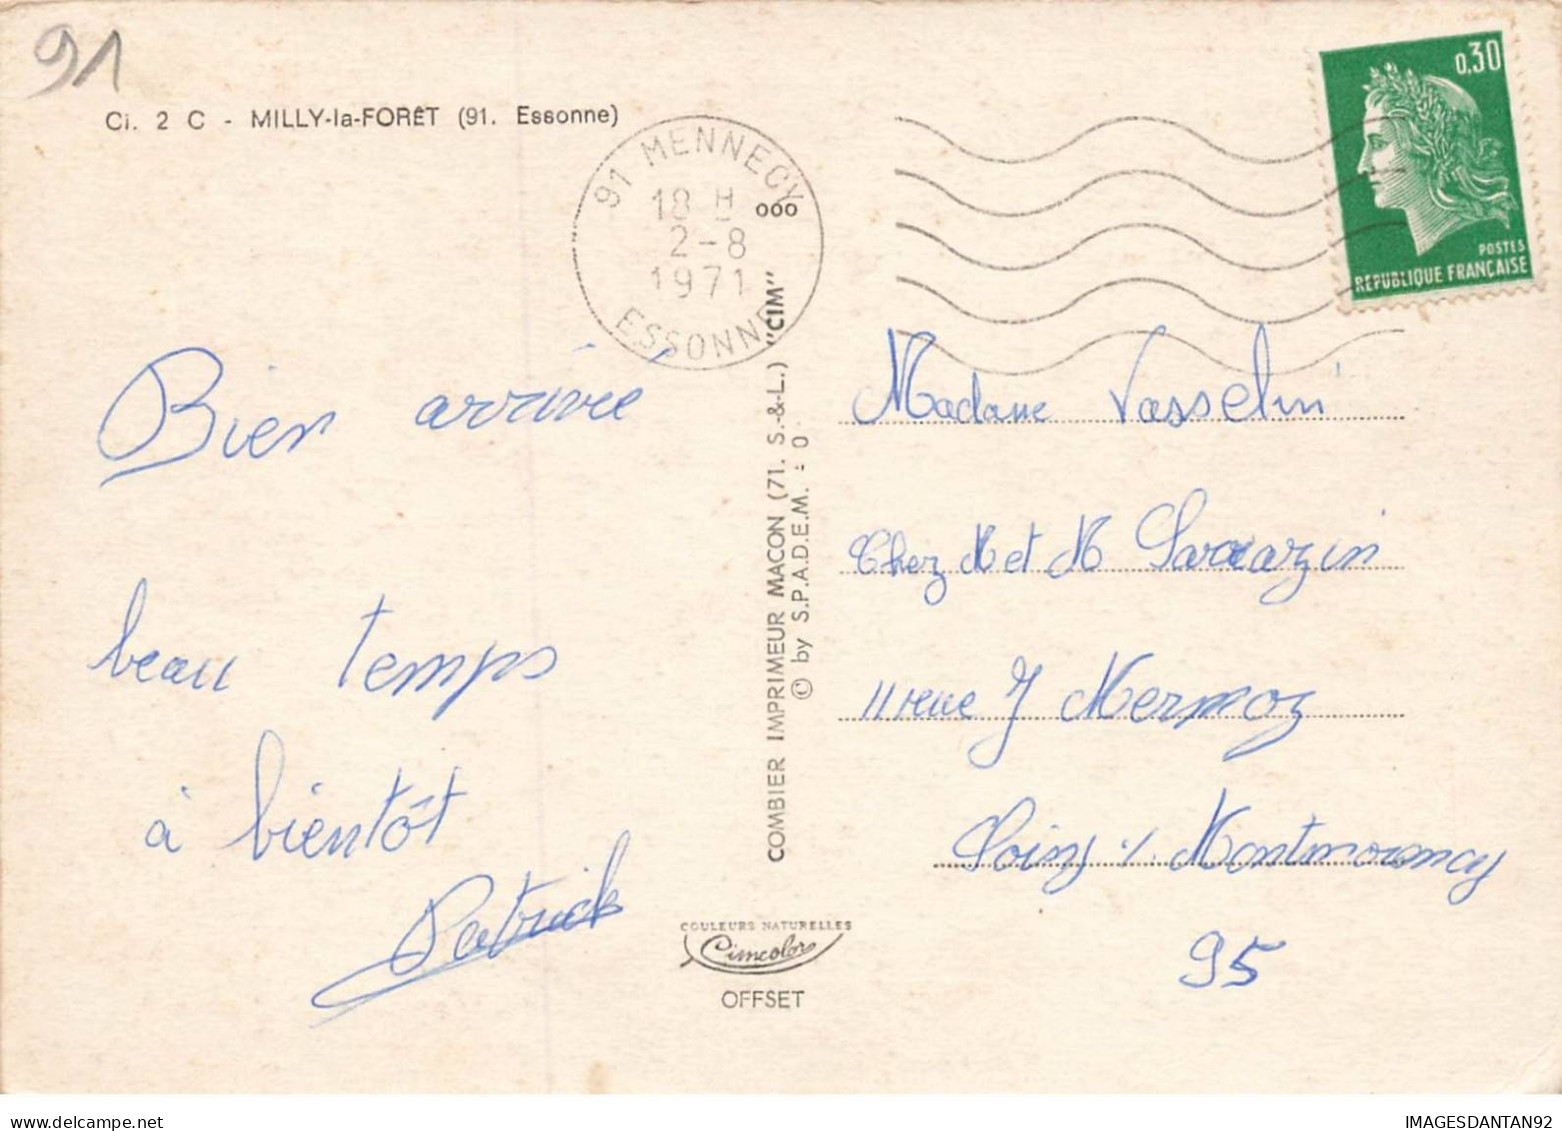 91
Ci. 2 C - MILLY-la-FORÊT (91. Essonne)
91 MENNECY
18 H
2-8
1971
ESSONNE
000
0,30
POSTES
REPUBLIQUE FRANÇAISE
Bien arrivée
beau temps
à bientôt
Patrick
COMBIER IMPRIMEUR MACON (71. S.-&-L.) "CIM"
© by S.P.A.D.E.M. - 0
COULEURS NATURELLES
Cimcolor
OFFSET
Madame Vasselin
Chez M et M Sarrazin
11 rue J Mermoz
Soisy s/. Montmorency
95
Delcampe.net
IMAGESDANTAN92